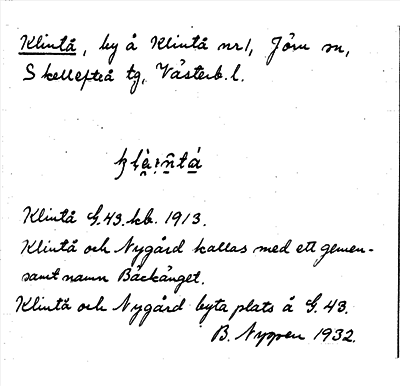 Klintå, by å Klintå nr 1, Jörn sn,
Skellefteå tg, Västerb. l.
Klintå G.43. kb. 1913.
Klintå och Nygård kallas med ett gemen-
samt namn Bäckänget.
Klintå och Nygård byta plats å G. 43.
B. Nyppen 1932.